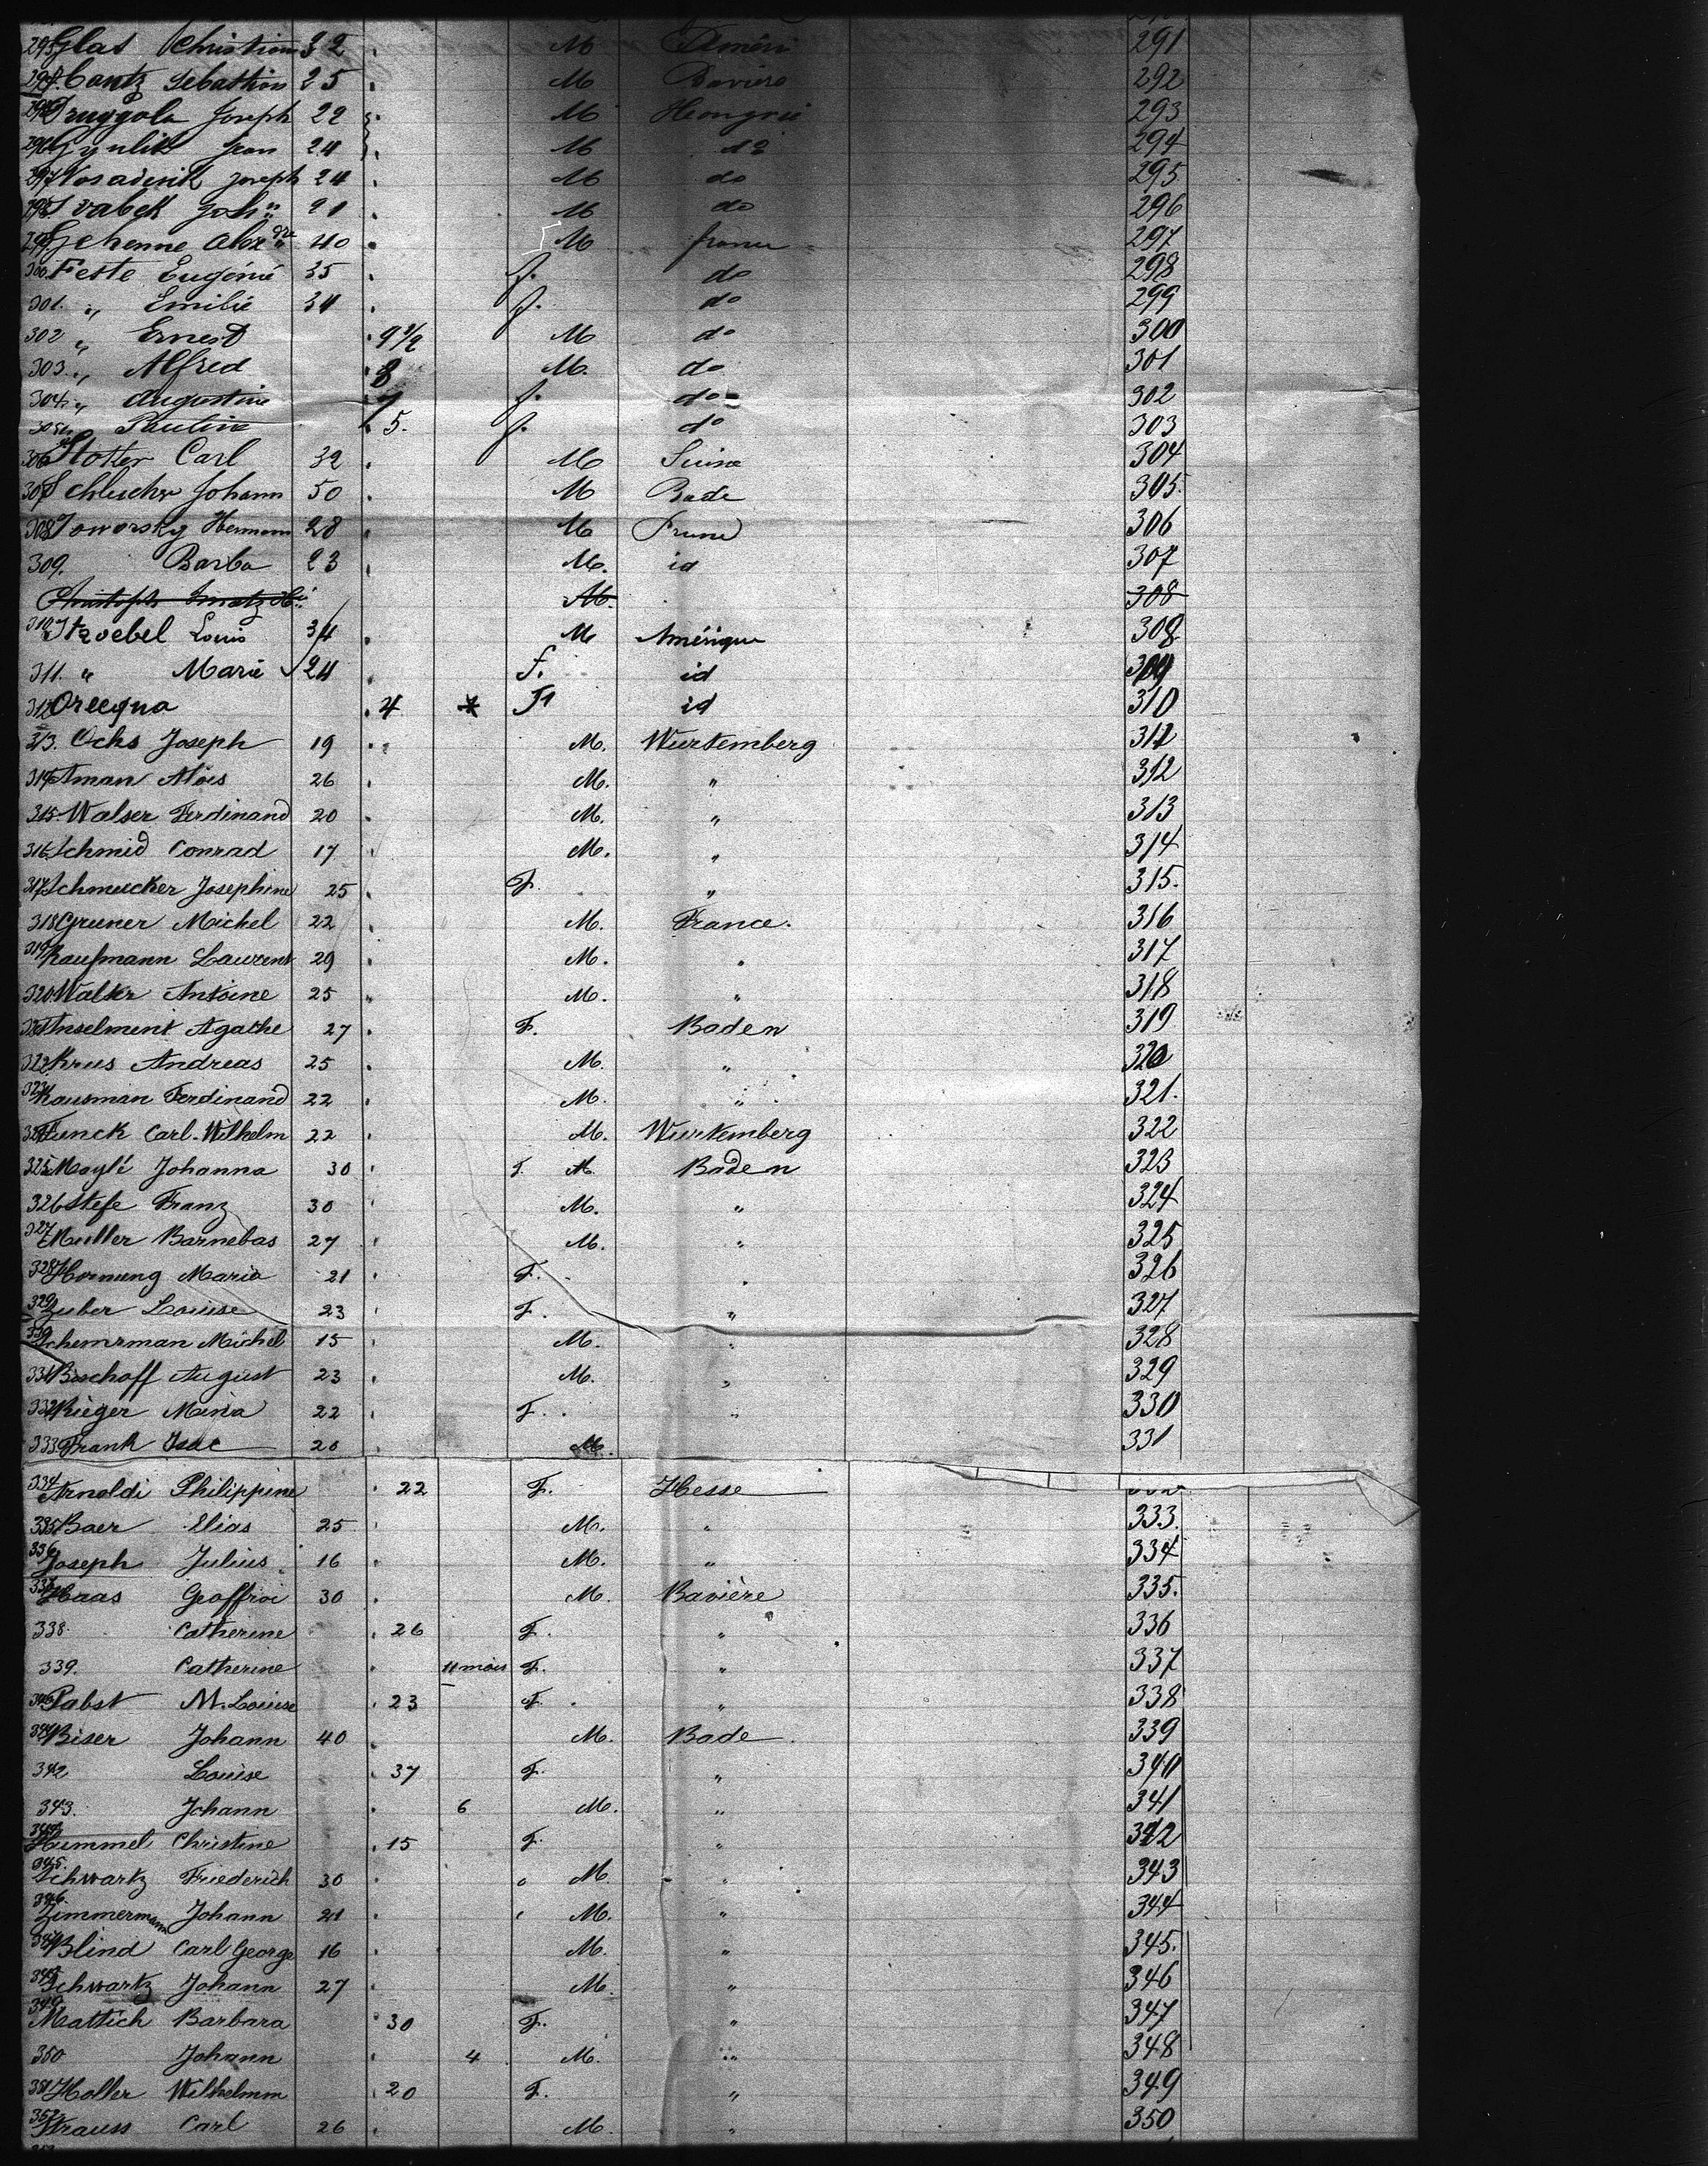 293 Glas Christian 32 M Améri 291
294 Cantz Sebastian 25 M Baviere 292
295 Joseph 22 M Hongrie 293
296 Gyulik Jean 24 M do 294
297 Joseph 24 M do 295
298 Svabek Joh 21 M do 296
299 Alex dre 40 M france 297
300 Feste Eugénie 35 f. do 298
301. " Emilie 34 f. do 299
302 " Ernest 9 1/2 M do 300
303. " Alfred 8 M. do 301
304. " Augustine 7 f. do 302
305 " Pauline 5. f. do 303
306 Stotter Carl 32 M Suisse 304
307 Johann 50 M Bade 305.
308 Joworsky Hermann 28 M 306
309. Barba 23 M. id 307
Christoph M. 308
310 Stroebel Louis 34 M Amérique 308
311. " Marie 24 f. id 309
312 Oreequa 4 * F id 310
313. Ochs Joseph 19 M. Wurtemberg 311
314 Aman Alois 26 M. " 312
315. Walser Ferdinand 20 M. " 313
316 Schmid Conrad 17 M. " 314
317 Schmucker Josephine 25 F. " 315.
318 Gruner Michel 22 M. France. 316
319 Kaufmann Laurent 29 M. " 317
320 Walter Antoine 25 M. " 318
321 Anselment Agathe 27 F. Baden 319
322 Krus Andreas 25 M. " 320
323 Kausman Ferdinand 22 M. " 321.
324 Funck Carl-Wilhelm 22 M. Wurtemberg 322
325 Maylé Johanna 30 F. M Baden 323
326 Stefe Franz 30 M. " 324
327 Muller Barnebas 27 M. " 325
328 Hornung Maria 21 F. " 326
329 Zuber Louise 23 F. " 327
330 Schemrman Michel 15 M. " 328
331 Bischoff August 23 M. " 329
332 Rieger Mina 22 F. " 330
333 Frank Isac 20 M. 331
334 Arnoldi Philippine 22 F. Hesse
335 Baer Elias 25 M. " 333.
336 Joseph Julius 16 M. " 334
337 Haas Geoffroi 30 M. Bavière 335.
338. Catherine 26 F. " 336
339. Catherine 11 mois F. " 337
340 Pabst M. Louise 23 F. " 338
341 Biser Johann 40 M. Bade 339
342 Louise 37 F. " 340
343. Johann 6 M. " 341
344. Hummel Christine 15 F. " 342
345. Schwartz Friederich 30 M " 343
346. Zimmermann Johann 21 M. " 344
347 Blind Carl George 16 M. " 345.
348 Schwartz Johann 27 M. " 346
349. Mattich Barbara 30 F. " 347
350 Johann 4 M. " 348
351 Holler Wilhelmm 20 F. " 349
352 Strauss Carl 26 M. " 350